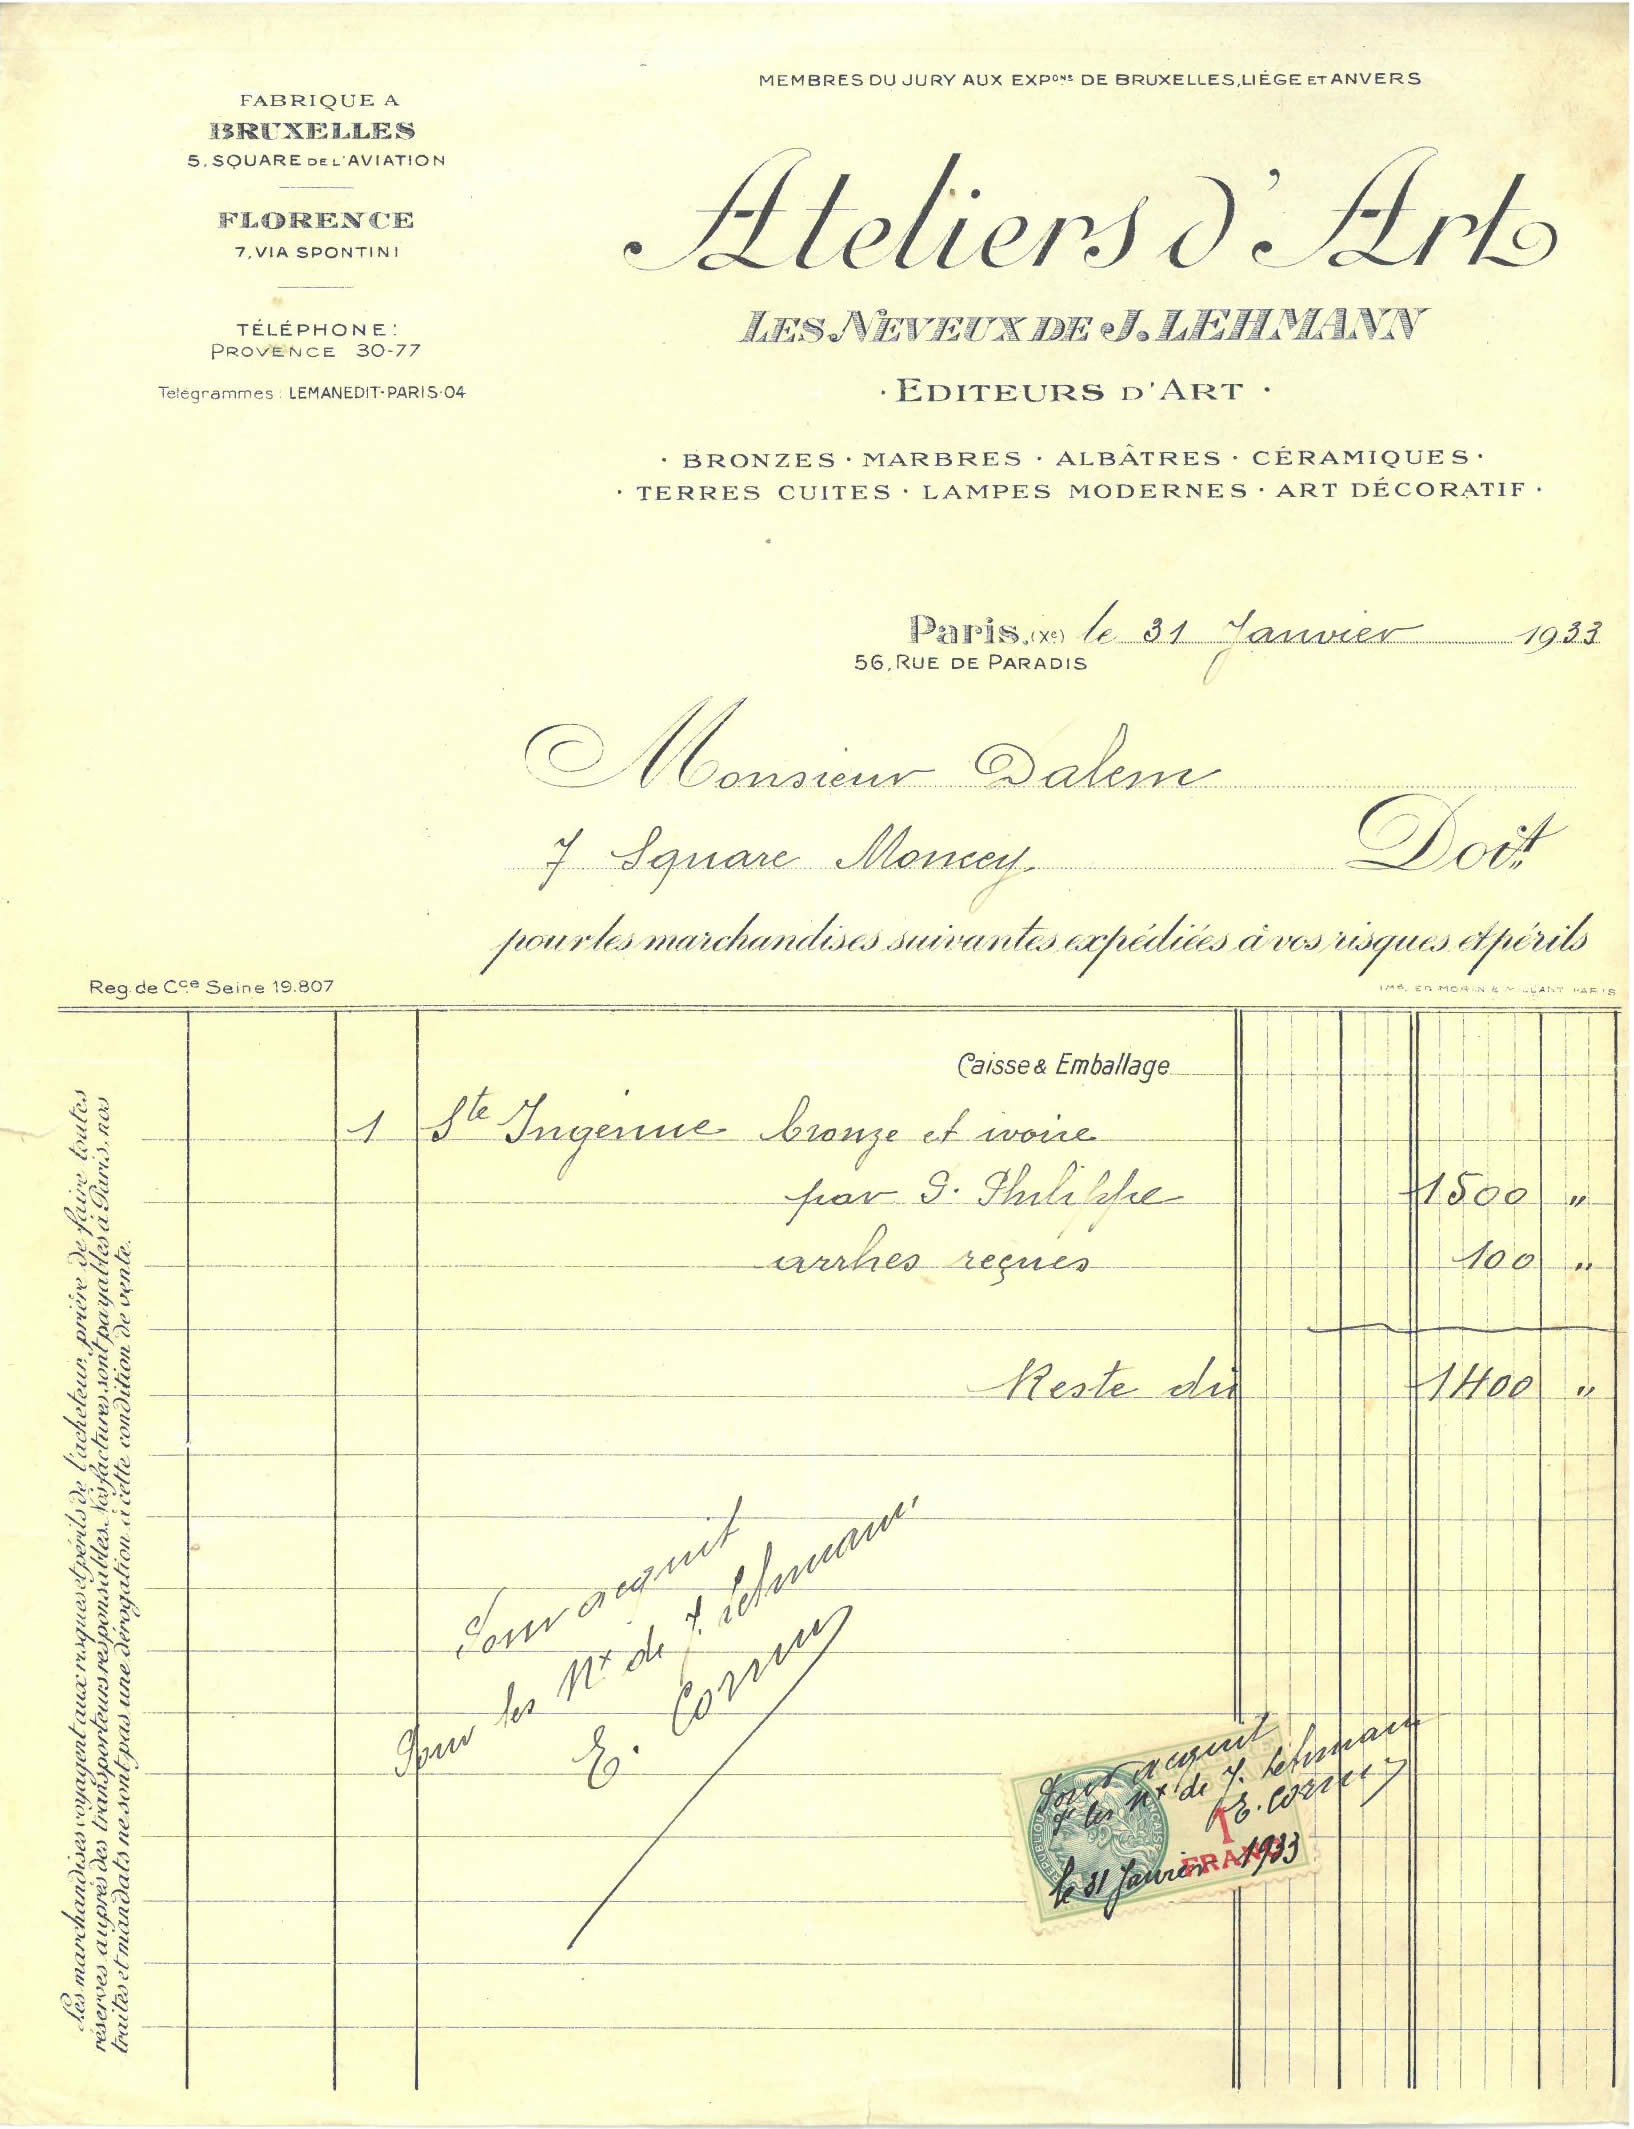 MEMBRES DU JURY AUX EXPONS DE BRUXELLES, LIÉGE ET ANVERS
FABRIQUE A
BRUXELLES
5, SQUARE DE L'AVIATION
FLORENCE
7, VIA SPONTINI
TÉLÉPHONE:
PROVENCE 30-77
Télégrammes: LEMANEDIT-PARIS-04
Ateliers d'Art
LES NEVEUX DE J. LEHMANN
· EDITEURS D'ART ·
· BRONZES · MARBRES · ALBÂTRES · CÉRAMIQUES ·
· TERRES CUITES · LAMPES MODERNES · ART DÉCORATIF ·
Paris, (Xe) le 31 Janvier 1933
56, RUE DE PARADIS
Monsieur Dalem
7 Square Moncey. Doit
pour les marchandises suivantes expédiées à vos risques et périls
Reg. de Cce Seine 19.807
Caisse & Emballage
1 Ste Ingénue bronze et ivoire
par P. Philippe 1500 "
arrhes reçues 100 "
Reste dû 1400 "
Pour acquit
Pour les Nx de J. Lehmann
E. Cornu
Pour acquit
Pr les Nx de J. Lehmann
E. Cornu
1
FRANC
le 31 Janvier 1933
Les marchandises voyagent aux risques et périls de l'acheteur, prière de faire toutes
réserves auprès des transporteurs responsables. Nos factures sont payables à Paris, nos
traites et mandats ne sont pas une dérogation à cette condition de vente.